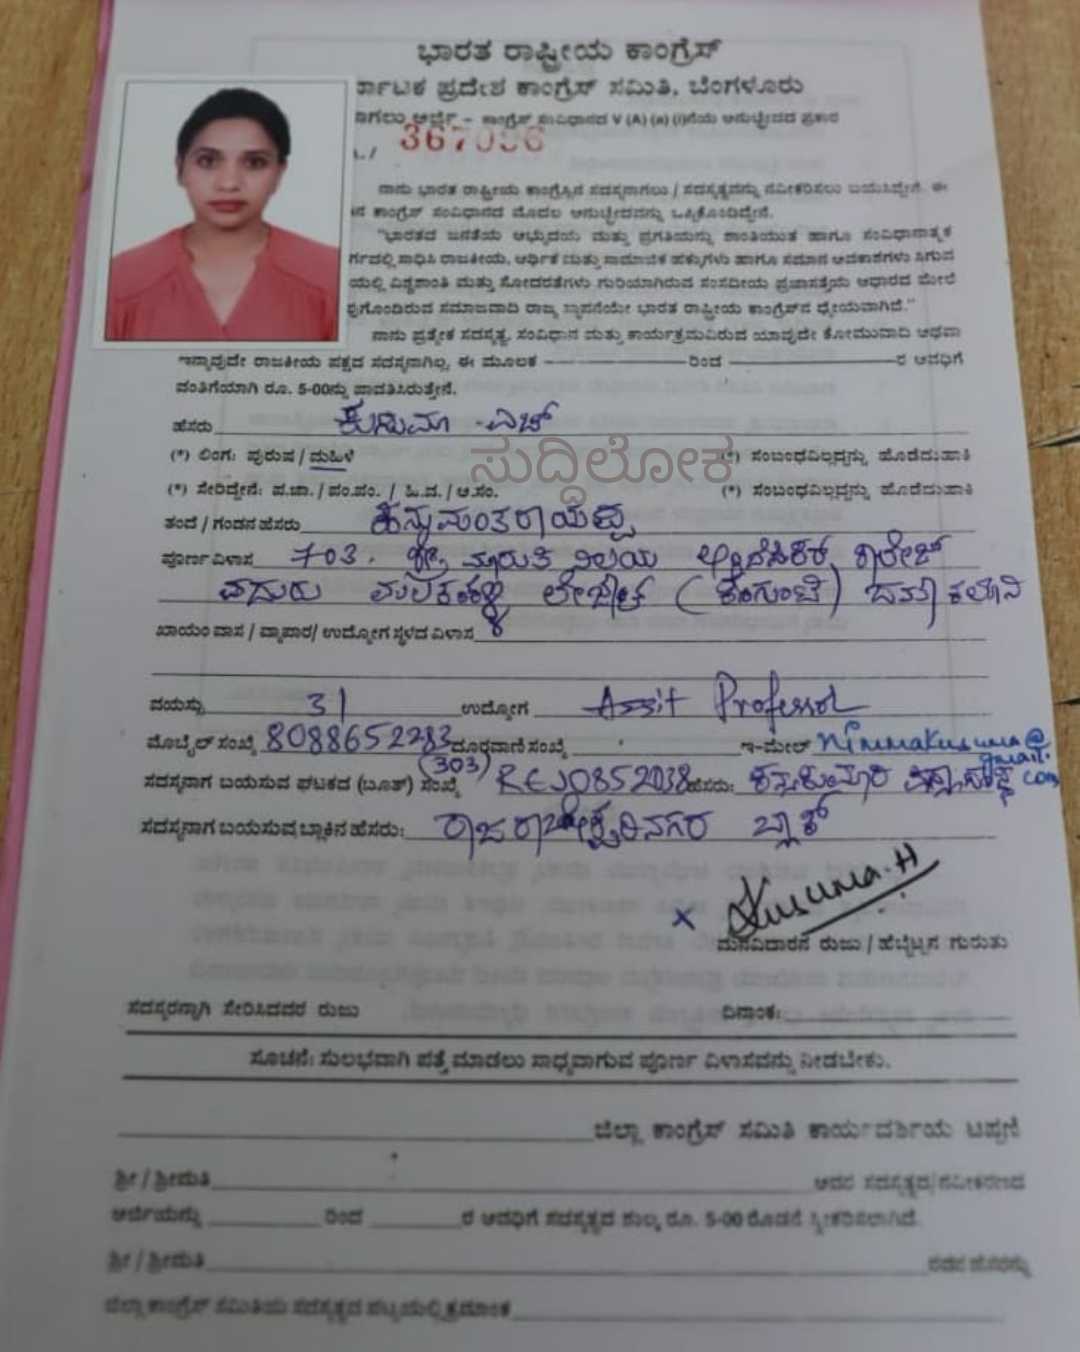 ಭಾರತ ರಾಷ್ಟ್ರೀಯ ಕಾಂಗ್ರೆಸ್
ರ್ನಾಟಕ ಪ್ರದೇಶ ಕಾಂಗ್ರೆಸ್ ಸಮಿತಿ, ಬೆಂಗಳೂರು
ನಾಗಲು ಅರ್ಜಿ - ಕಾಂಗ್ರೆಸ್ ಸಂವಿಧಾನದ V (A) (a) (i)ನೆಯ ಅನುಚ್ಛೇದದ ಪ್ರಕಾರ
ನಾನು ಭಾರತ ರಾಷ್ಟ್ರೀಯ ಕಾಂಗ್ರೆಸಿನ ಸದಸ್ಯನಾಗಲು / ಸದಸ್ಯತ್ವವನ್ನು ನವೀಕರಿಸಲು ಬಯಸಿದ್ದೇನೆ. ಈ
ನ ಕಾಂಗ್ರೆಸ್ ಸಂವಿಧಾನದ ಮೊದಲ ಅನುಚ್ಛೇದವನ್ನು ಒಪ್ಪಿಕೊಂಡಿದ್ದೇನೆ.
"ಭಾರತದ ಜನತೆಯ ಅಭ್ಯುದಯ ಮತ್ತು ಪ್ರಗತಿಯನ್ನು ಶಾಂತಿಯುತ ಹಾಗೂ ಸಂವಿಧಾನಾತ್ಮಕ
ರ್ಗದಲ್ಲಿ ಸಾಧಿಸಿ ರಾಜಕೀಯ, ಆರ್ಥಿಕ ಮತ್ತು ಸಾಮಾಜಿಕ ಹಕ್ಕುಗಳು ಹಾಗೂ ಸಮಾನ ಅವಕಾಶಗಳು ಸಿಗುವ
ಯಲ್ಲಿ ವಿಶ್ವಶಾಂತಿ ಮತ್ತು ಸೋದರತೆಗಳು ಗುರಿಯಾಗಿರುವ ಸಂಸದೀಯ ಪ್ರಜಾಸತ್ತೆಯ ಆಧಾರದ ಮೇಲೆ
ಪುಗೊಂಡಿರುವ ಸಮಾಜವಾದಿ ರಾಜ್ಯ ಸ್ಥಾಪನೆಯೇ ಭಾರತ ರಾಷ್ಟ್ರೀಯ ಕಾಂಗ್ರೆಸ್‌ನ ಧ್ಯೇಯವಾಗಿದೆ."
ನಾನು ಪ್ರತ್ಯೇಕ ಸದಸ್ಯತ್ವ, ಸಂವಿಧಾನ ಮತ್ತು ಕಾರ್ಯಕ್ರಮವಿರುವ ಯಾವುದೇ ಕೋಮುವಾದಿ ಅಥವಾ
ಇನ್ನಾವುದೇ ರಾಜಕೀಯ ಪಕ್ಷದ ಸದಸ್ಯನಾಗಿಲ್ಲ, ಈ ಮೂಲಕ ರಿಂದ ರ ಅವಧಿಗೆ
ವಂತಿಗೆಯಾಗಿ ರೂ. 5-00ನ್ನು ಪಾವತಿಸಿರುತ್ತೇನೆ.
ಹೆಸರು ಕುಸುಮಾ - ಎಚ್
ಸುದ್ದಿಲೋಕ
(*) ಲಿಂಗ: ಪುರುಷ / ಮಹಿಳೆ (*) ಸಂಬಂಧವಿಲ್ಲದ್ದನ್ನು ಹೊಡೆದುಹಾಕಿ
(*) ಸೇರಿದ್ದೇನೆ: ಪ.ಜಾ. / ಪಂ.ಪಂ. / ಹಿ.ವ. / ಅ.ಸಂ. (*) ಸಂಬಂಧವಿಲ್ಲದ್ದನ್ನು ಹೊಡೆದುಹಾಕಿ
ತಂದೆ / ಗಂಡನ ಹೆಸರು ಹನುಮಂತರಾಯಪ್ಪ
ಪೂರ್ಣ ವಿಳಾಸ 703. ಶ್ರೀ ಮಾರುತಿ ನಿಲಯ ಕಾಲೇಜ್
ಎದುರು ಮಲ್ಲತ್ತಹಳ್ಳಿ ಲೇಔಟ್ (ಕೆಂಗುಂಟೆ)
ಖಾಯಂ ವಾಸ / ವ್ಯಾಪಾರ/ ಉದ್ಯೋಗ ಸ್ಥಳದ ವಿಳಾಸ
ವಯಸ್ಸು 31 ಉದ್ಯೋಗ Assit Professor
ಮೊಬೈಲ್ ಸಂಖ್ಯೆ 8088652283 ದೂರವಾಣಿ ಸಂಖ್ಯೆ ಇ-ಮೇಲ್ Nimmakusuma@gmail.com
ಸದಸ್ಯನಾಗ ಬಯಸುವ ಘಟಕದ (ಬೂತ್) ಸಂಖ್ಯೆ (303) ಹೆಸರು:
ಸದಸ್ಯನಾಗ ಬಯಸುವ ಬ್ಲಾಕಿನ ಹೆಸರು: ರಾಜರಾಜೇಶ್ವರಿನಗರ ಬ್ಲಾಕ್
x Kusuma.H
ಮನವಿದಾರನ ರುಜು / ಹೆಬ್ಬೆಟ್ಟಿನ ಗುರುತು
ಸದಸ್ಯರನ್ನಾಗಿ ಸೇರಿಸಿದವರ ರುಜು ದಿನಾಂಕ:
ಸೂಚನೆ: ಸುಲಭವಾಗಿ ಪತ್ತೆ ಮಾಡಲು ಸಾಧ್ಯವಾಗುವ ಪೂರ್ಣ ವಿಳಾಸವನ್ನು ನೀಡಬೇಕು.
ಜಿಲ್ಲಾ ಕಾಂಗ್ರೆಸ್ ಸಮಿತಿ ಕಾರ್ಯದರ್ಶಿಯ ಟಿಪ್ಪಣಿ
ಶ್ರೀ / ಶ್ರೀಮತಿ ಅವರ ಸದಸ್ಯತ್ವದ/ನವೀಕರಣದ
ಅರ್ಜಿಯನ್ನು ರಿಂದ ರ ಅವಧಿಗೆ ಸದಸ್ಯತ್ವದ ಶುಲ್ಕ ರೂ. 5-00 ರೊಡನೆ ಸ್ವೀಕರಿಸಲಾಗಿದೆ.
ಶ್ರೀ / ಶ್ರೀಮತಿ ರವರ ಹೆಸರನ್ನು
ಜಿಲ್ಲಾ ಕಾಂಗ್ರೆಸ್ ಸಮಿತಿಯ ಸದಸ್ಯತ್ವದ ಪಟ್ಟಿಯಲ್ಲಿ ಕ್ರಮಾಂಕ